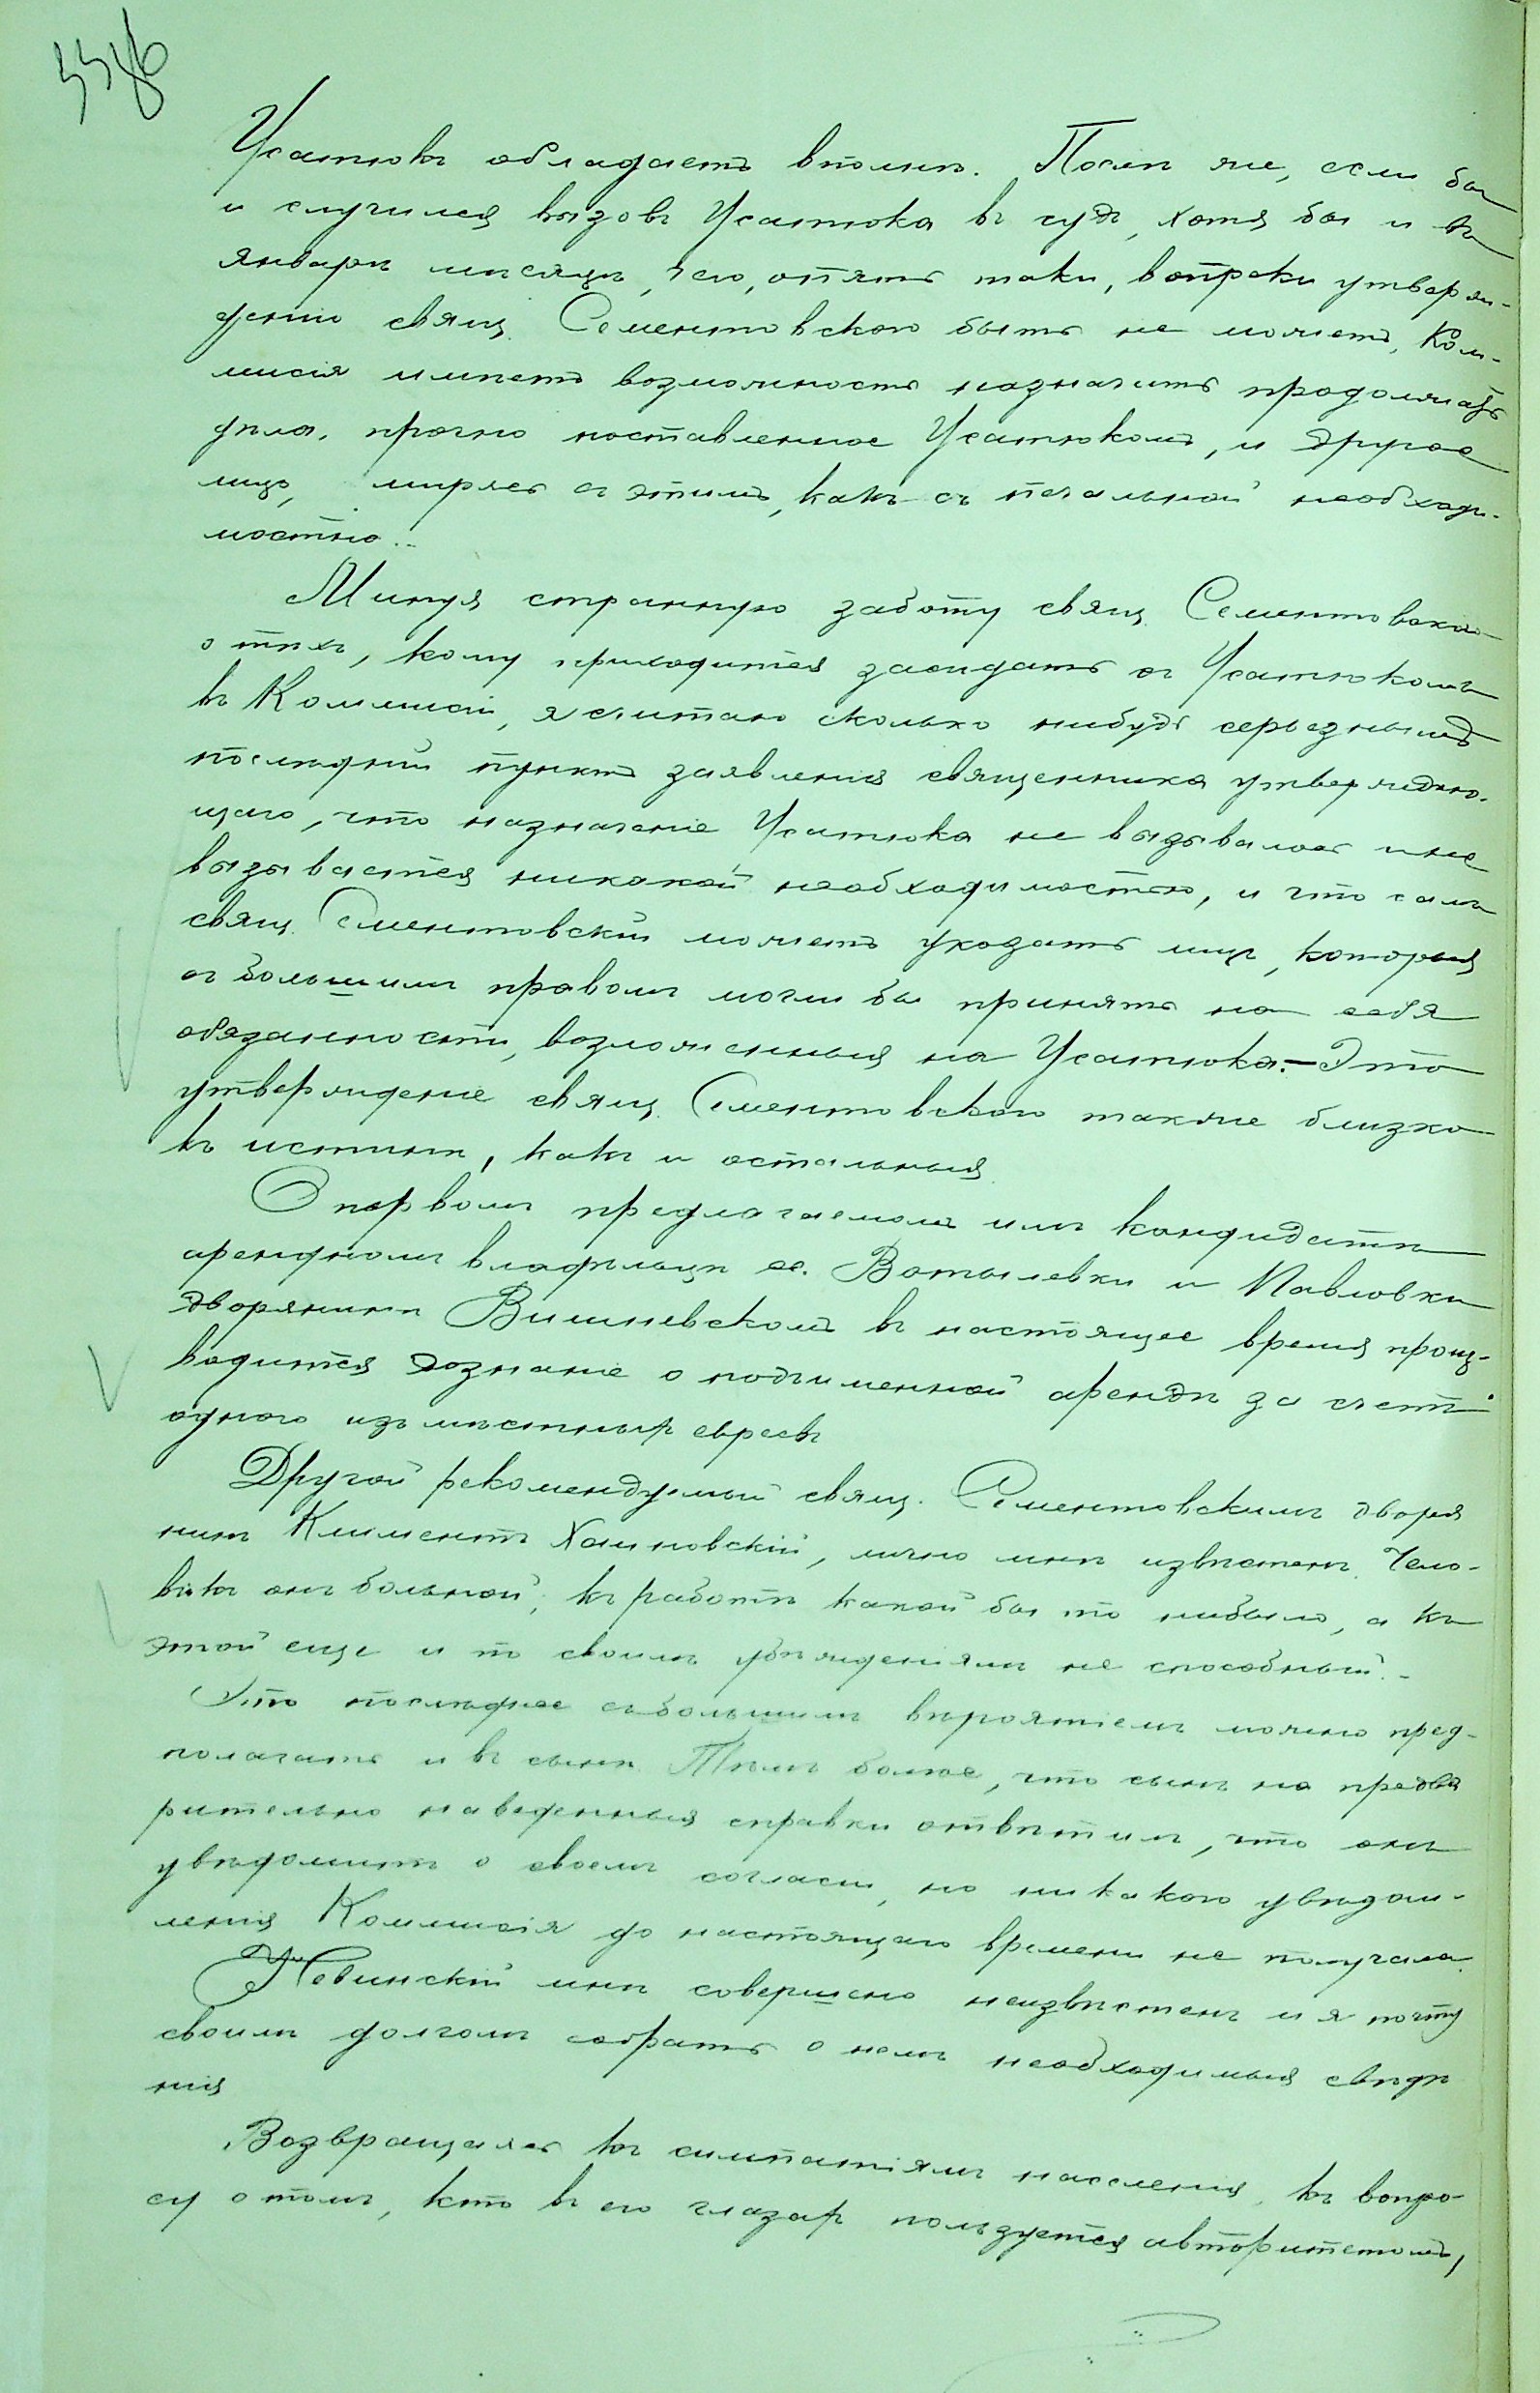 Усатюкъ обладаетъ вполнѣ. Послѣ же, если бы
и случился вызовъ Усатюка въ судъ, хотя бы и въ
январѣ мѣсяцѣ, чего, опять таки, вопреки утверж-
денію свящ. Сементовскаго быть не можетъ, Ком-
мисія имѣетъ возможность назначить продолжать
дѣло, прочно поставленное Усатюкомъ, и другое
лицо, мирясь съ этимъ, какъ съ печальной необходи-
мостью...
Минуя странную заботу свящ. Сементовскаго
о тѣхъ, кому приходится засидать съ Усатюкомъ
въ Коммисіи, я считаю сколько нибудь серьезнымъ
послѣдній пунктъ заявленія священника утверждаю-
щаго, что назначеніе Усатюка не вызывалось и не
вызывается никакой необходимостью, и что самъ
свящ. Сементовскій можетъ указать лицъ, которыя
съ большимъ правомъ могли бы принять на себя
обязанности, возложенныя на Усатюка. – Это
утвержденіе свящ. Сементовскаго такъже близко
къ истинѣ, какъ и остальныя.
О первомъ предлагаемомъ имъ кандидатѣ
арендномъ владѣльцѣ сс. Вотылевки и Павловки
дворянинѣ Вишневскомъ въ настоящее время произ-
водится дознаніе о подъименной арендѣ за счетъ
одного изъ мѣстныхъ евреевъ
Другой рекомендуемый свящ. Сементовскимъ дворя
нинъ Климентъ Халновскій, лично мнѣ извѣстенъ. Чело-
вѣкъ онъ больной, къ работѣ какой бы то нибыло, а къ
этой еще и по своимъ убѣжденіямъ не способный. -
Это послѣднее съ большимъ вѣроятіемъ можно пред-
полагать и въ сынѣ. Тѣмъ болѣе, что сынъ на предва
рительно наведенныя справки отвѣтилъ, что онъ
увѣдомитъ о своемъ согласіи, но никакого увѣдом-
ленія Коммисія до настоящаго времени не получала.
Левинскій мнѣ совершено неизвѣстенъ и я почту
своимъ долгомъ собрать о немъ необходимыя свѣдѣ
нія
Возвращаясь къ симпатіямъ населенія, къ вопро-
су о томъ, кто въ его глазахъ пользуется авторитетомъ,